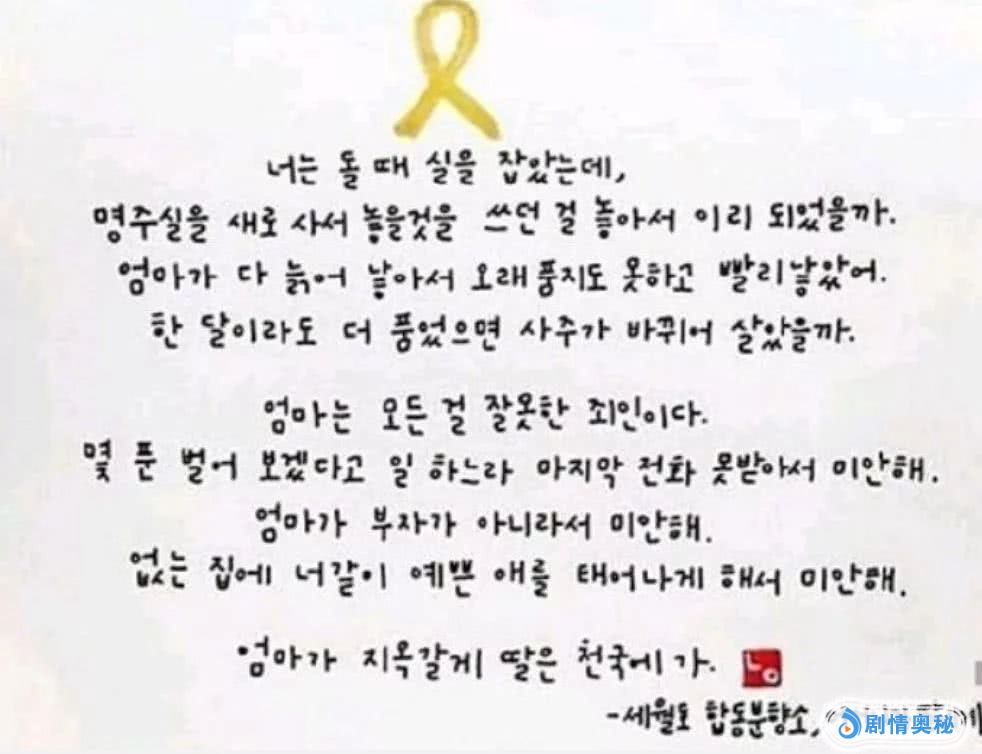 너는 돌 때 실을 잡았는데,
명주실을 새로 사서 놓을것을 쓰던 걸 놓아서 이리 되었을까.
엄마가 다 늙어 낳아서 오래 품지도 못하고 빨리낳았어.
한 달이라도 더 품었으면 사주가 바뀌어 살았을까.
엄마는 모든 걸 잘못한 죄인이다.
몇 푼 벌어 보겠다고 일 하느라 마지막 전화 못받아서 미안해.
엄마가 부자가 아니라서 미안해.
없는 집에 너같이 예쁜 애를 태어나게 해서 미안해.
엄마가 지옥갈게 딸은 천국에 가.
-세월호 합동분향소,
剧情奥秘